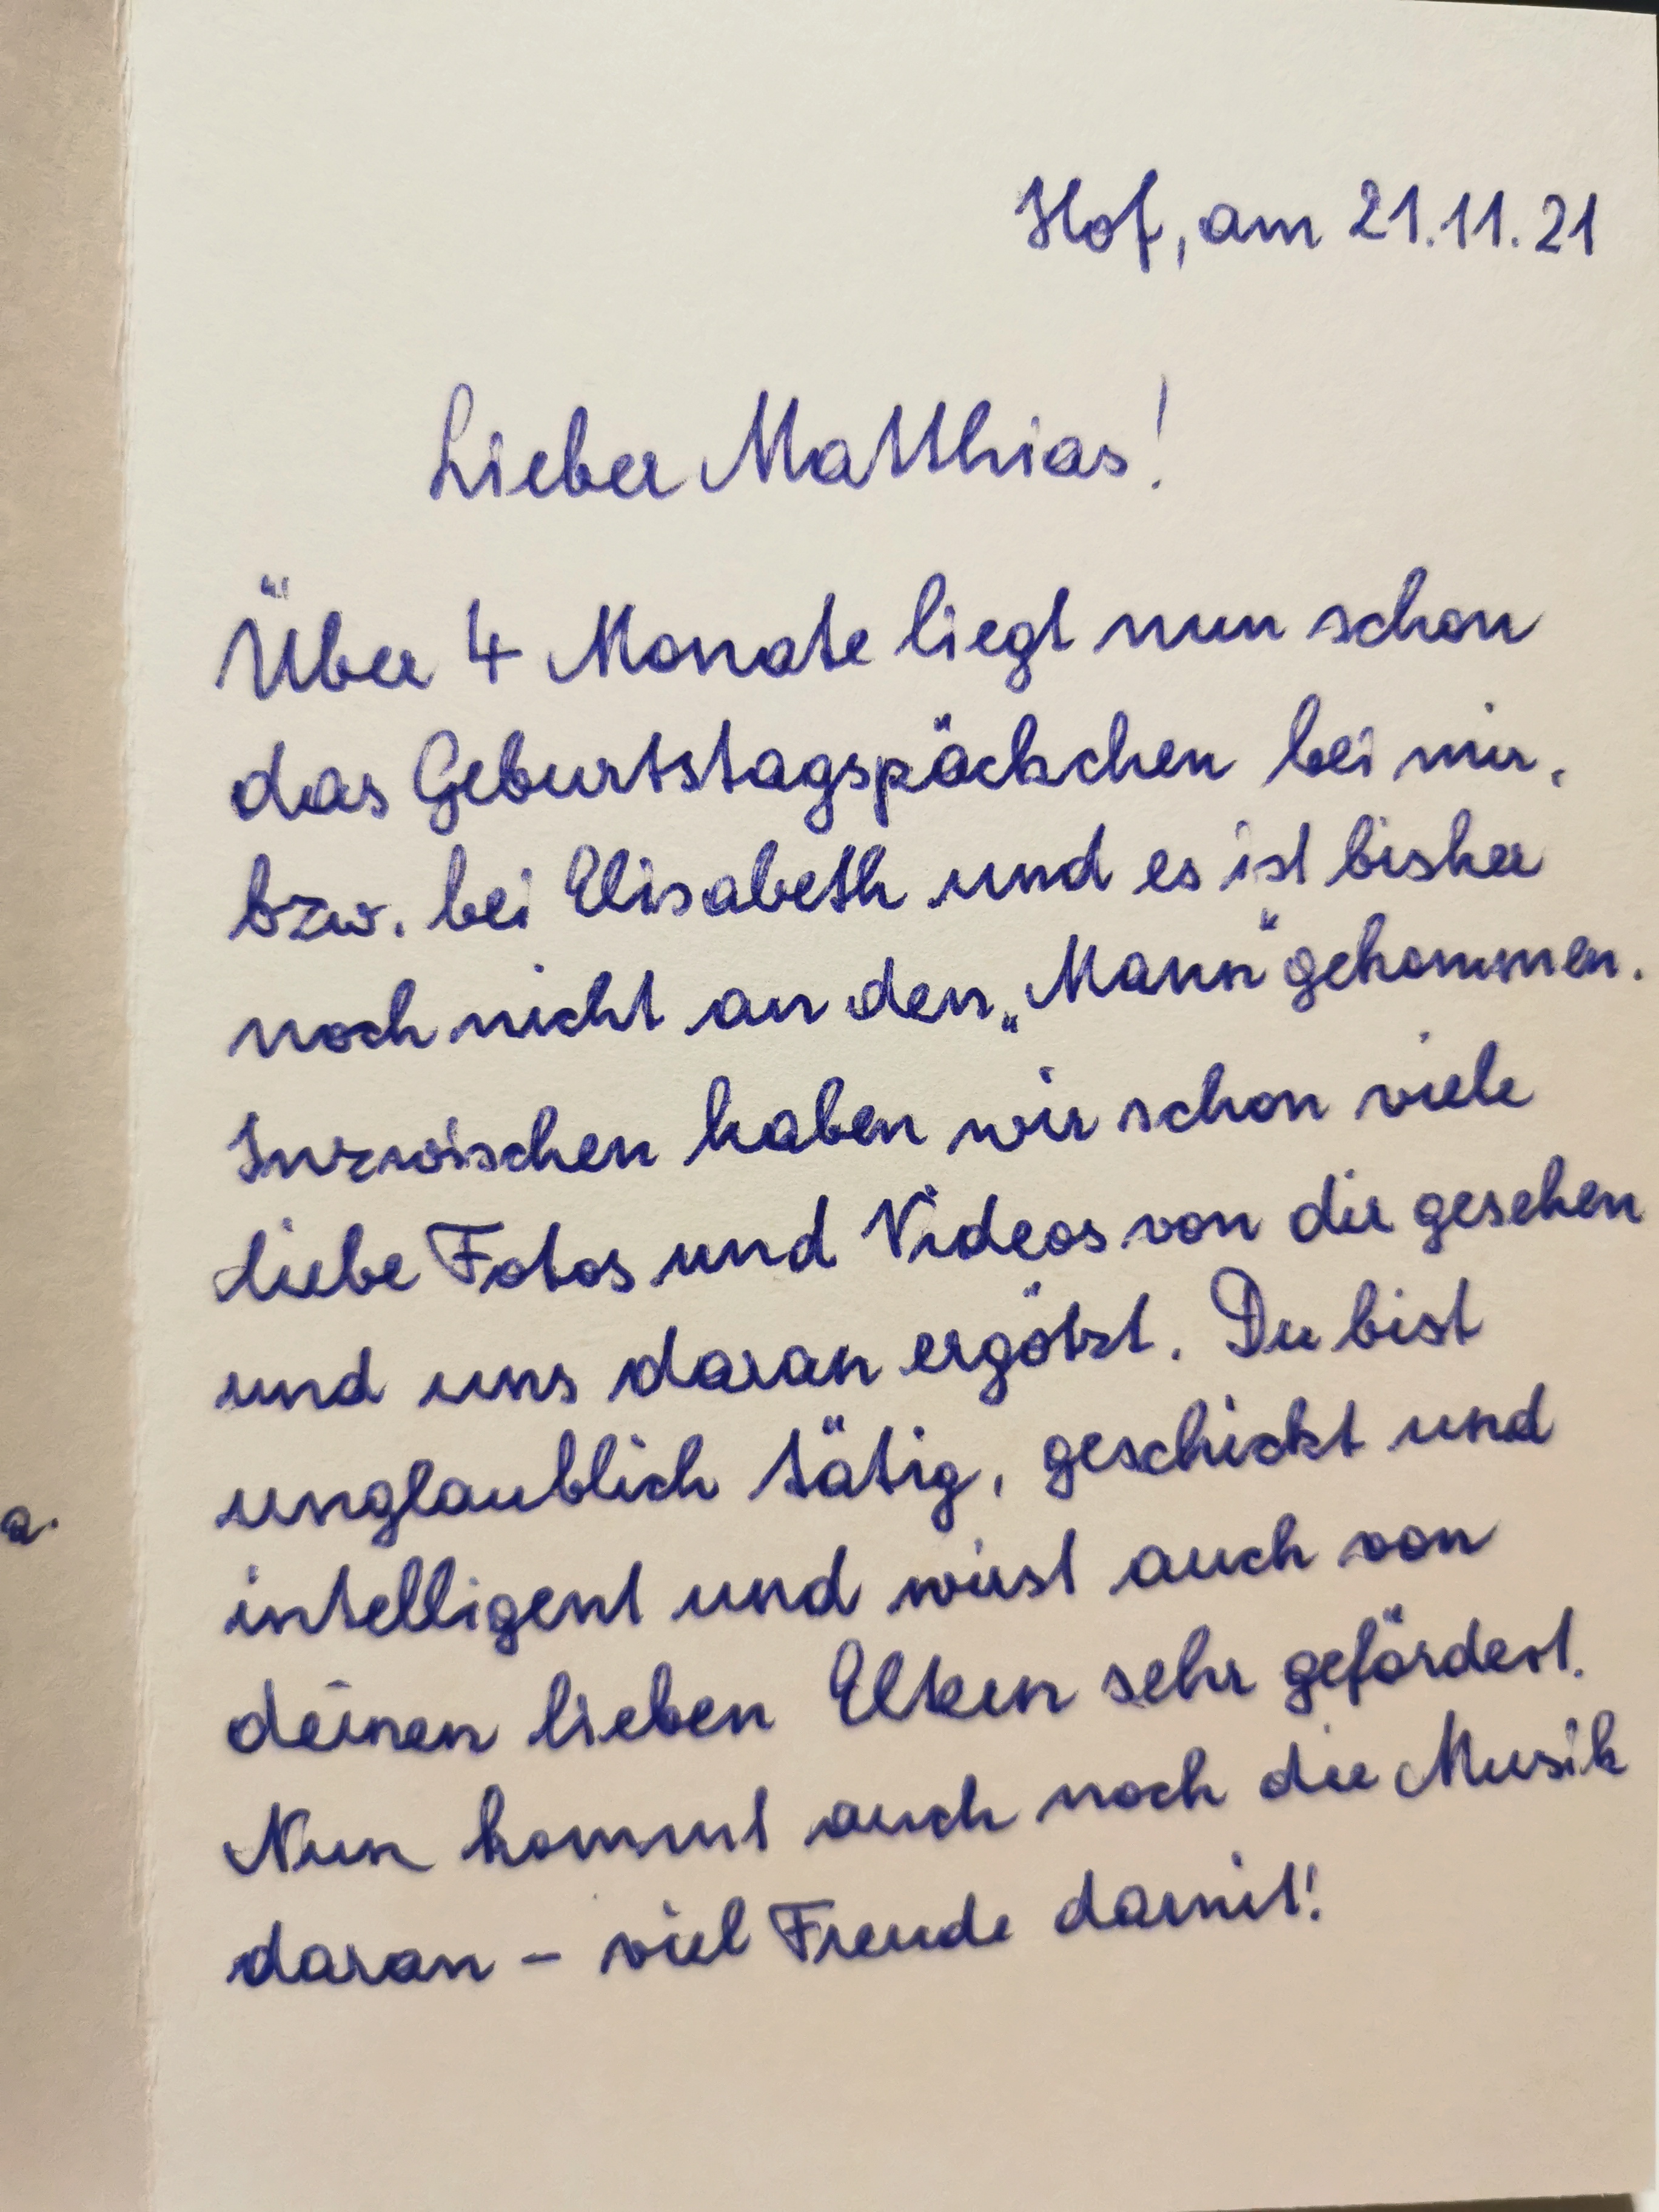 Hof, am 21.11.21
Lieber Matthias!
Über 4 Monate liegt nun schon
das Geburtstagspäckchen bei mir,
bzw. bei Elisabeth und es ist bisher
noch nicht an den „Mann“ gekommen.
Inzwischen haben wir schon viele
liebe Fotos und Videos von dir gesehen
und uns daran ergötzt. Du bist
unglaublich tätig, geschickt und
intelligent und wirst auch von
deinen lieben Eltern sehr gefördert.
Nun kommt auch noch die Musik
daran – viel Freude damit!